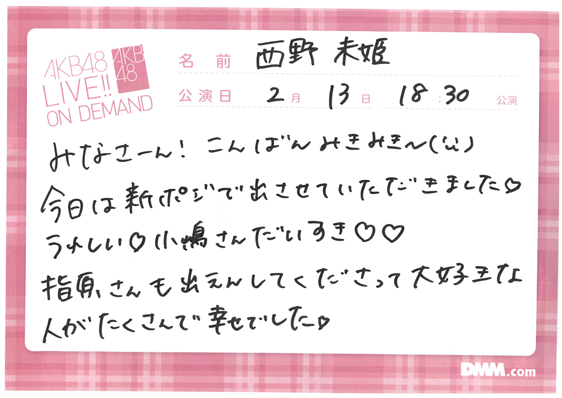 AKB48
LIVE!!
ON DEMAND
AKB
48
名前 西野 未姫
公演日 2月 13日 18:30 公演
みなさーん! こんばんみきみき〜(ˊᵕˋ)
今日は新ポジで出させていただきました♡
うれしい♡小嶋さんだいすき♡♡
指原さんも出えんしてくださって大好きな
人がたくさんで幸せでした♡
DMM.com